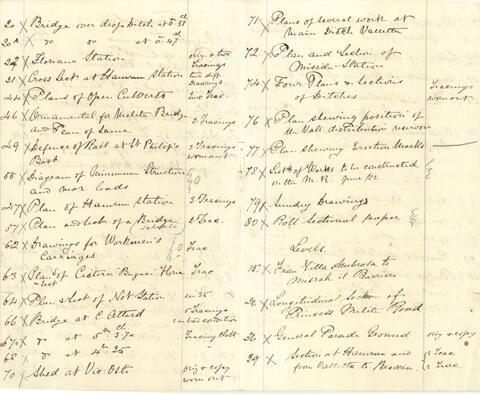 20 X Bridge over drop Ditch at 0.37 ch
20A X do do at 0.47 ch
22 X Floriana Station orig & two Tracings
31 X Cross Sect at Hamrun Station two diff. Drawings
44 X Plans of Open Culverts two Trac
46 X Ornamental for Notabile Bridge
and Plan of same 2 Tracings
49 X Defence of Rail at St Philip's
Bast 3 Tracings worn out
55 X Diagram of Minimum Structure
and max loads
27 X Plan of Hamrun Station 3 Tracings
57 X Plan and Sect of a Bridge 2 Trac.
62 X Drawings for Workmen's
Carriages Trac
63 X Plan of Cistern Trac
& Sect
64 X Plan & Sect of Not. Station
66 X Bridge at C. Attard 5 Tracings in bad condition
67 X do at 5 m ch 370 Tracing Cloth
68 X do at 4 m 25
70 X Shed at Vic. Ditch orig & copy
worn out
71 X Plans of several work at
Main Ditch Valletta
72 X Plan and Section of
Misida Station
74 X Four Plans & Sections
of Ditches Tracings worn out
76 X Plan shewing position of
the Vall. distribution reservoir
77 X Plan shewing Erection Marks
78 X List of Works to be constructed
on the M.R. June /82
79 X Sundry Drawings
80 X Roll Sectional paper
Levels
15 X From Villa Ambrosia to
Misrah il Barrieri
26 X Longitudinal Section of
Princess Melita Road
36 X General Parade Ground orig & copy
39 X Section at Hamrun and 2 Trac
from Valletta to 2 Trac